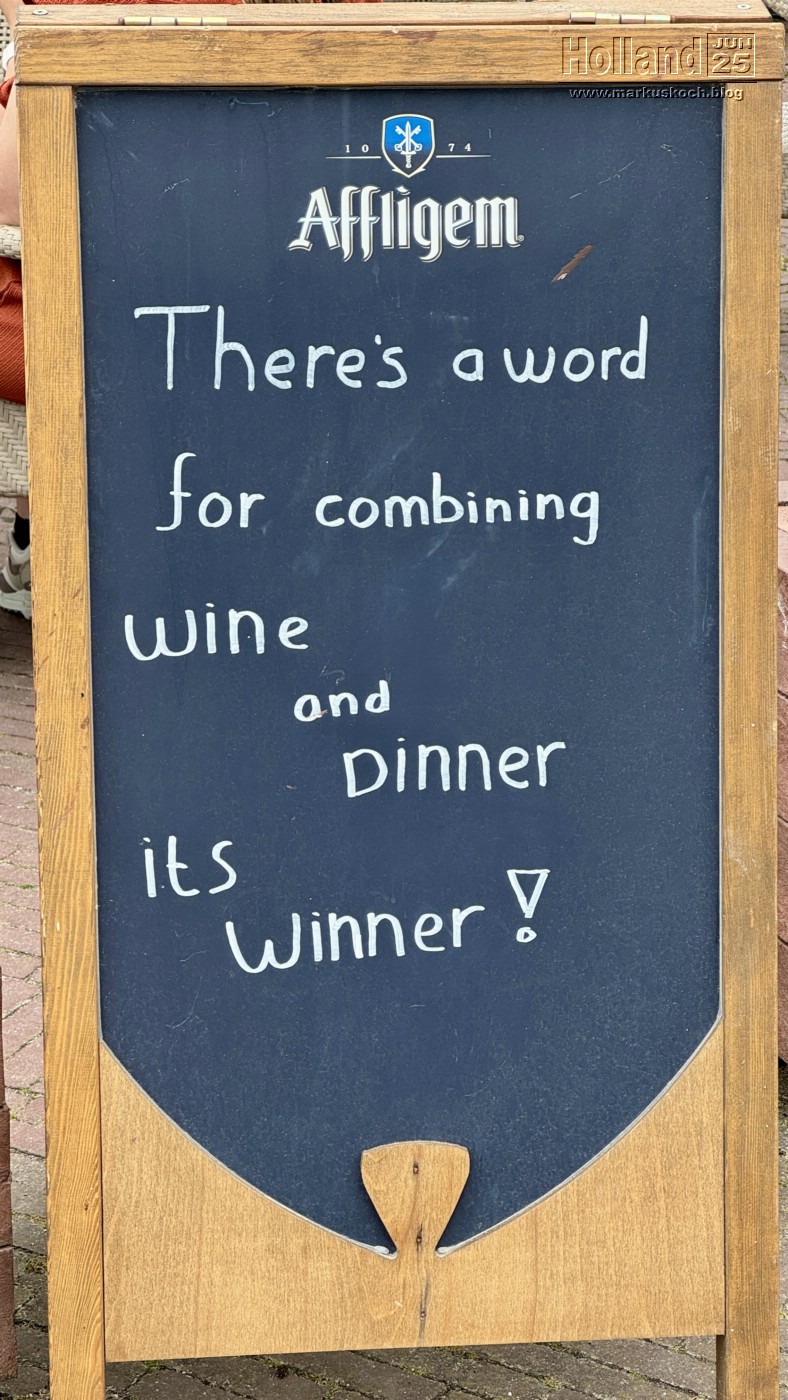 Holland JUN 25
www.markuskoch.blog
10 74
Affligem
There's a word
for combining
wine
and
Dinner
its
Winner!